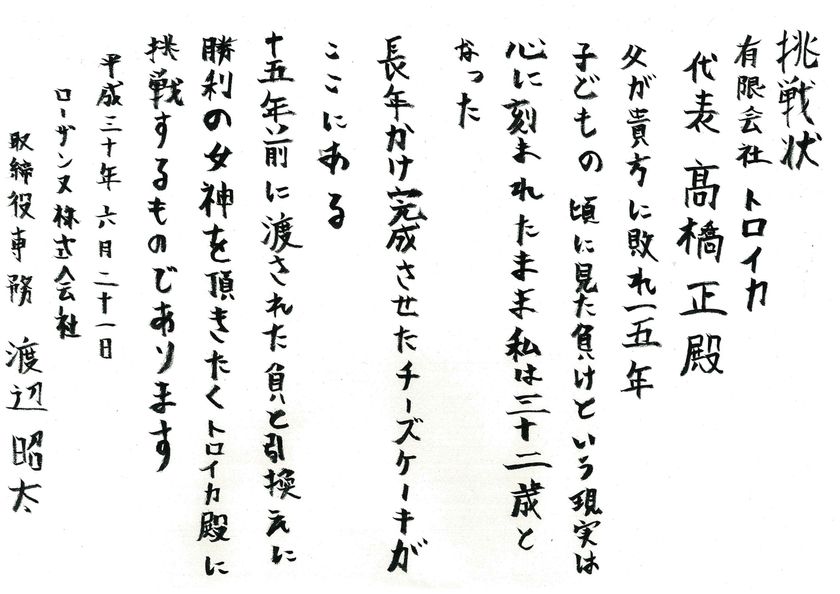 挑戦状
有限会社 トロイカ
代表 髙橋 正 殿
父が貴方に敗れ一五年
子どもの頃に見た負けという現実は
心に刻まれたまま私は三十二歳と
なった
長年かけ完成させたチーズケーキが
ここにある
十五年前に渡された負と引換えに
勝利の女神を頂きたくトロイカ殿に
挑戦するものであります
平成三十年 六月二十一日
ローザンヌ株式会社
取締役専務 渡辺 昭太